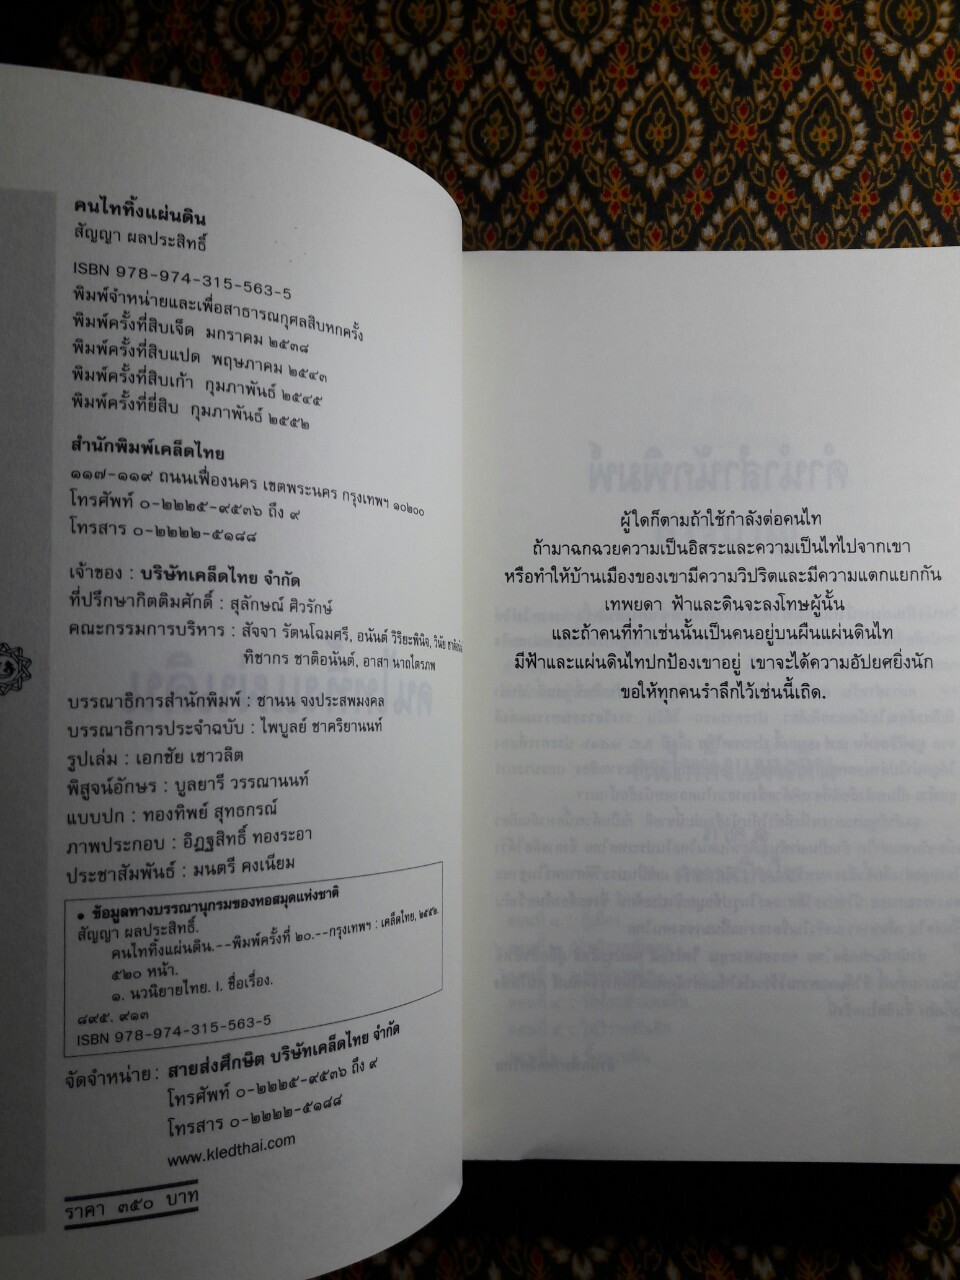 คนไททิ้งแผ่นดิน
สัญญา ผลประสิทธิ์
ISBN 978-974-315-563-5
พิมพ์จำหน่ายและเพื่อสาธารณกุศลสิบหกครั้ง
พิมพ์ครั้งที่สิบเจ็ด มกราคม ๒๕๓๘
พิมพ์ครั้งที่สิบแปด พฤษภาคม ๒๕๔๓
พิมพ์ครั้งที่สิบเก้า กุมภาพันธ์ ๒๕๔๕
พิมพ์ครั้งที่ยี่สิบ กุมภาพันธ์ ๒๕๕๒
สำนักพิมพ์เคล็ดไทย
๑๑๗-๑๑๙ ถนนเฟื่องนคร เขตพระนคร กรุงเทพฯ ๑๐๒๐๐
โทรศัพท์ ๐-๒๒๒๕-๙๕๓๖ ถึง ๙
โทรสาร ๐-๒๒๒๒-๕๑๘๘
เจ้าของ : บริษัทเคล็ดไทย จำกัด
ที่ปรึกษากิตติมศักดิ์ : สุลักษณ์ ศิวรักษ์
คณะกรรมการบริหาร : สัจจา รัตนโฉมศรี, อนันต์ วิริยะพินิจ, วินัย
ทิชากร ชาติอนันต์, อาสา นาถไตรภพ
บรรณาธิการสำนักพิมพ์ : ชานน จงประสพมงคล
บรรณาธิการประจำฉบับ : ไพบูลย์ ชาคริยานนท์
รูปเล่ม : เอกชัย เชาวลิต
พิสูจน์อักษร : บูลยารี วรรณานนท์
แบบปก : ทองทิพย์ สุทธกรณ์
ภาพประกอบ : อิฏฐสิทธิ์ ทองระอา
ประชาสัมพันธ์ : มนตรี คงเนียม
• ข้อมูลทางบรรณานุกรมของหอสมุดแห่งชาติ
สัญญา ผลประสิทธิ์.
คนไททิ้งแผ่นดิน.--พิมพ์ครั้งที่ ๒๐.--กรุงเทพฯ : เคล็ดไทย, ๒๕๕๒.
๕๒๐ หน้า.
๑. นวนิยายไทย. I. ชื่อเรื่อง.
๘๙๕. ๙๑๓
ISBN 978-974-315-563-5
จัดจำหน่าย : สายส่งศึกษิต บริษัทเคล็ดไทย จำกัด
โทรศัพท์ ๐-๒๒๒๕-๙๕๓๖ ถึง ๙
โทรสาร ๐-๒๒๒๒-๕๑๘๘
www.kledthai.com
ราคา ๓๕๐ บาท
ผู้ใดก็ตามถ้าใช้กำลังต่อคนไท
ถ้ามาฉกฉวยความเป็นอิสระและความเป็นไทไปจากเขา
หรือทำให้บ้านเมืองของเขามีความวิปริตและมีความแตกแยกกัน
เทพยดา ฟ้าและดินจะลงโทษผู้นั้น
และถ้าคนที่ทำเช่นนั้นเป็นคนอยู่บนผืนแผ่นดินไท
มีฟ้าและแผ่นดินไทปกป้องเขาอยู่ เขาจะได้ความอัปยศยิ่งนัก
ขอให้ทุกคนรำลึกไว้เช่นนี้เถิด.